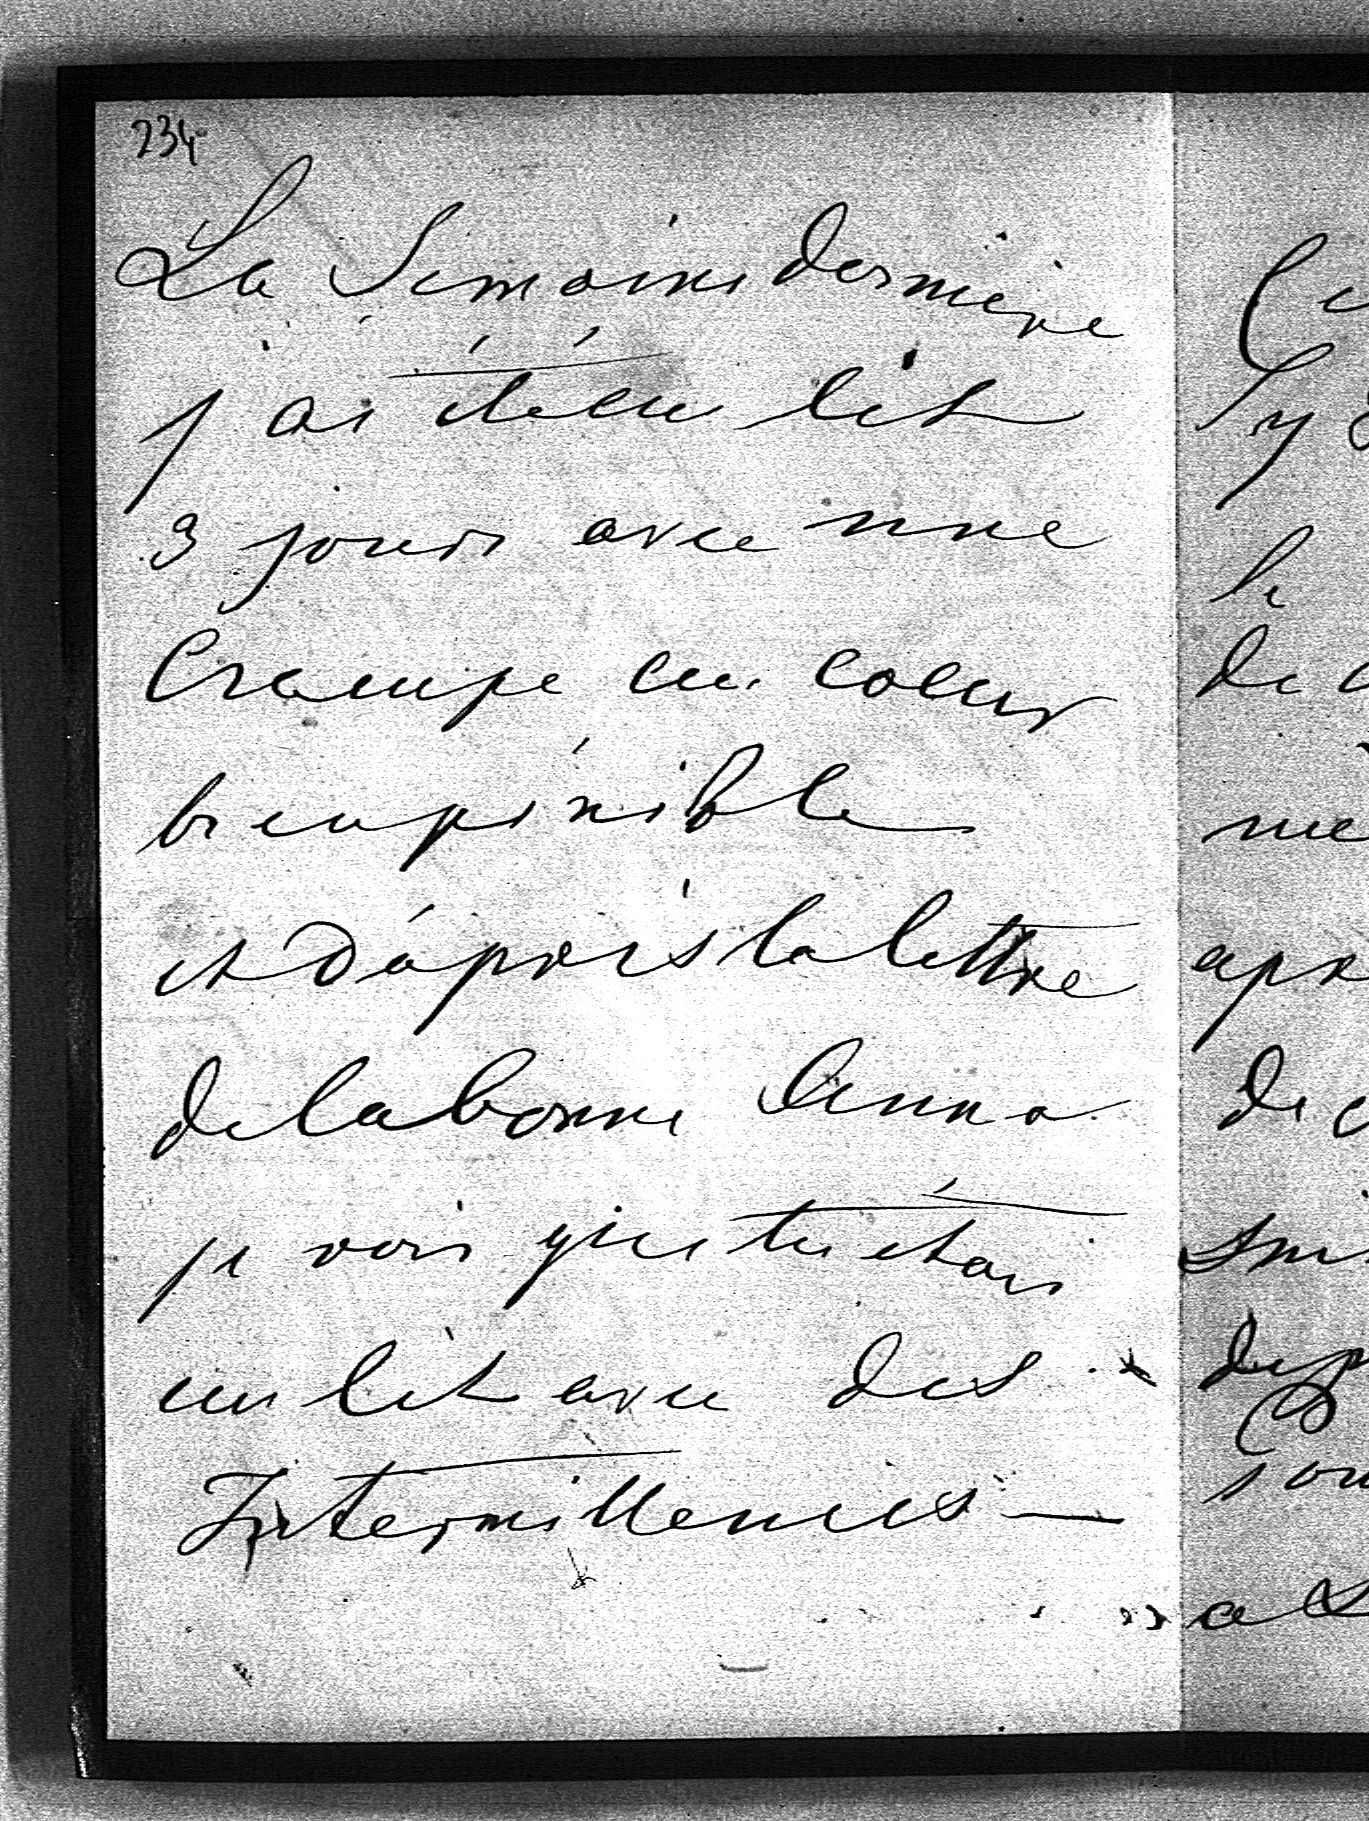 234
La Semaine dernière
j'ai été au lit
3 jours avec une
Crampe au coeur
bien pénible
et d'aprés la lettre
de la bonne Anna
je vois que tu étais
au lit avec des
Intermittences —